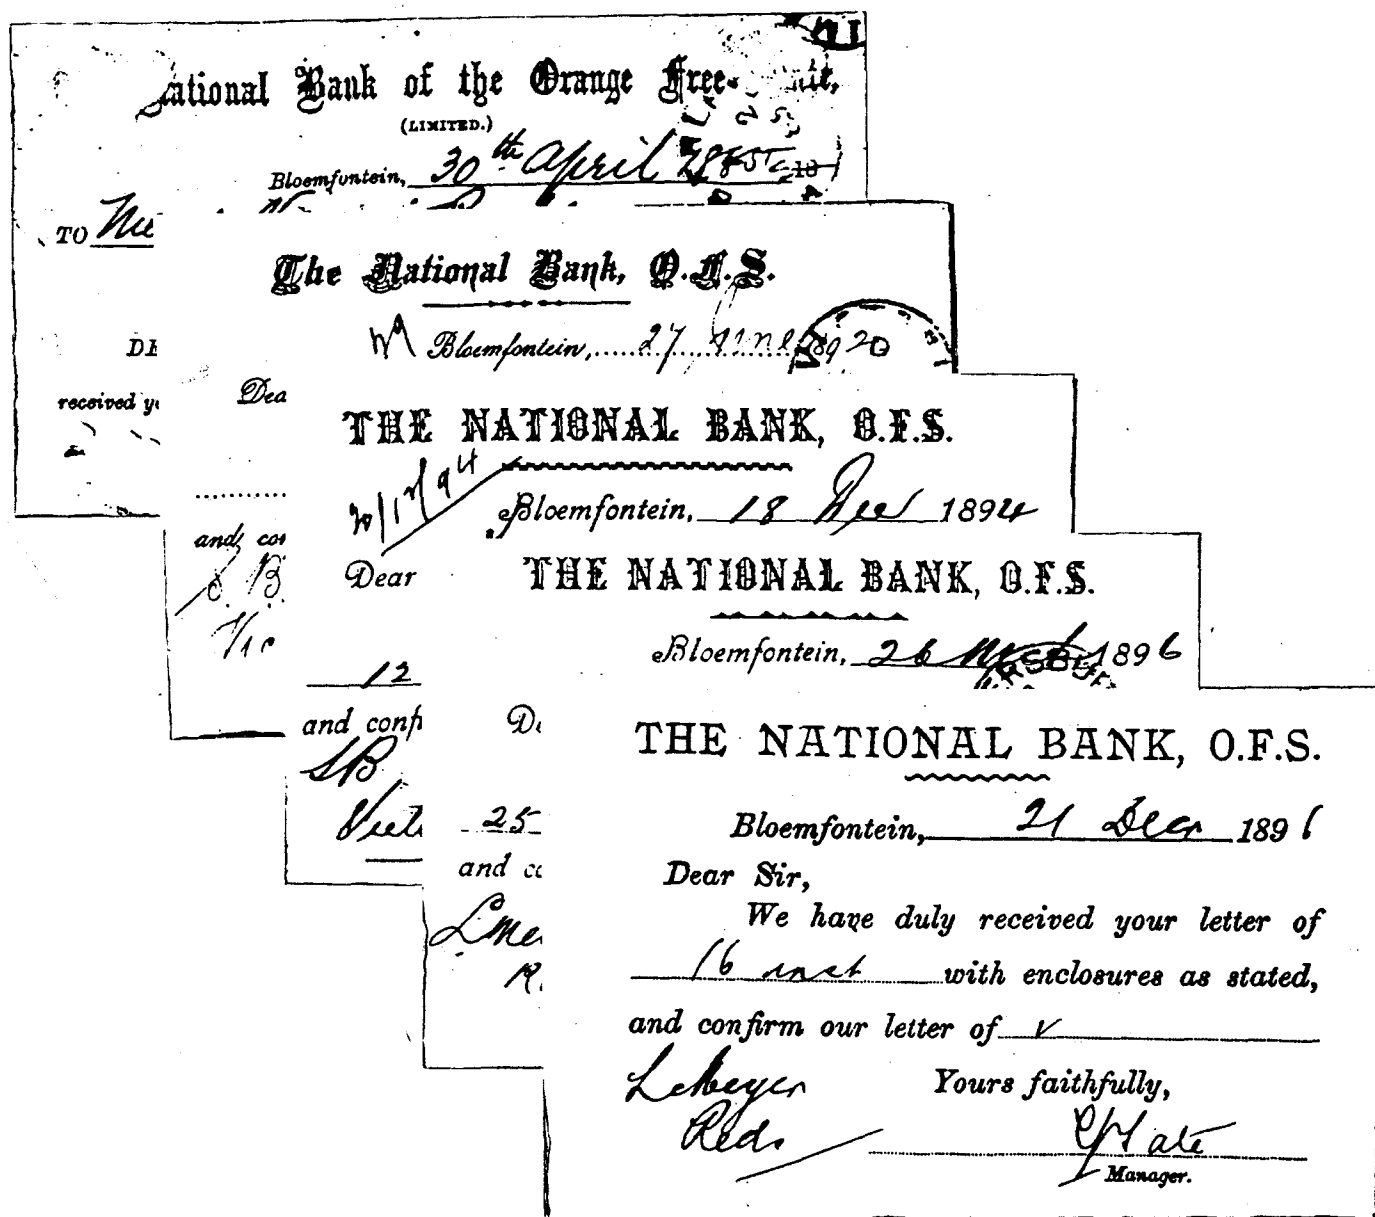 National Bank of the Orange Free State,
(LIMITED.)
Bloemfontein, 30th April 188
TO
received
The National Bank, O.F.S.
Bloemfontein, 27 June 189
Dea
and con
THE NATIONAL BANK, O.F.S.
20/12/94
Bloemfontein, 18 Dec 1894
Dear
12
and confi
SB
THE NATIONAL BANK, O.F.S.
Bloemfontein, 26 1896
De
25
and co
THE NATIONAL BANK, O.F.S.
Bloemfontein, 21 Decr 1896
Dear Sir,
We have duly received your letter of
16 inst with enclosures as stated,
and confirm our letter of
L Meyer Yours faithfully,
Reds
Manager.